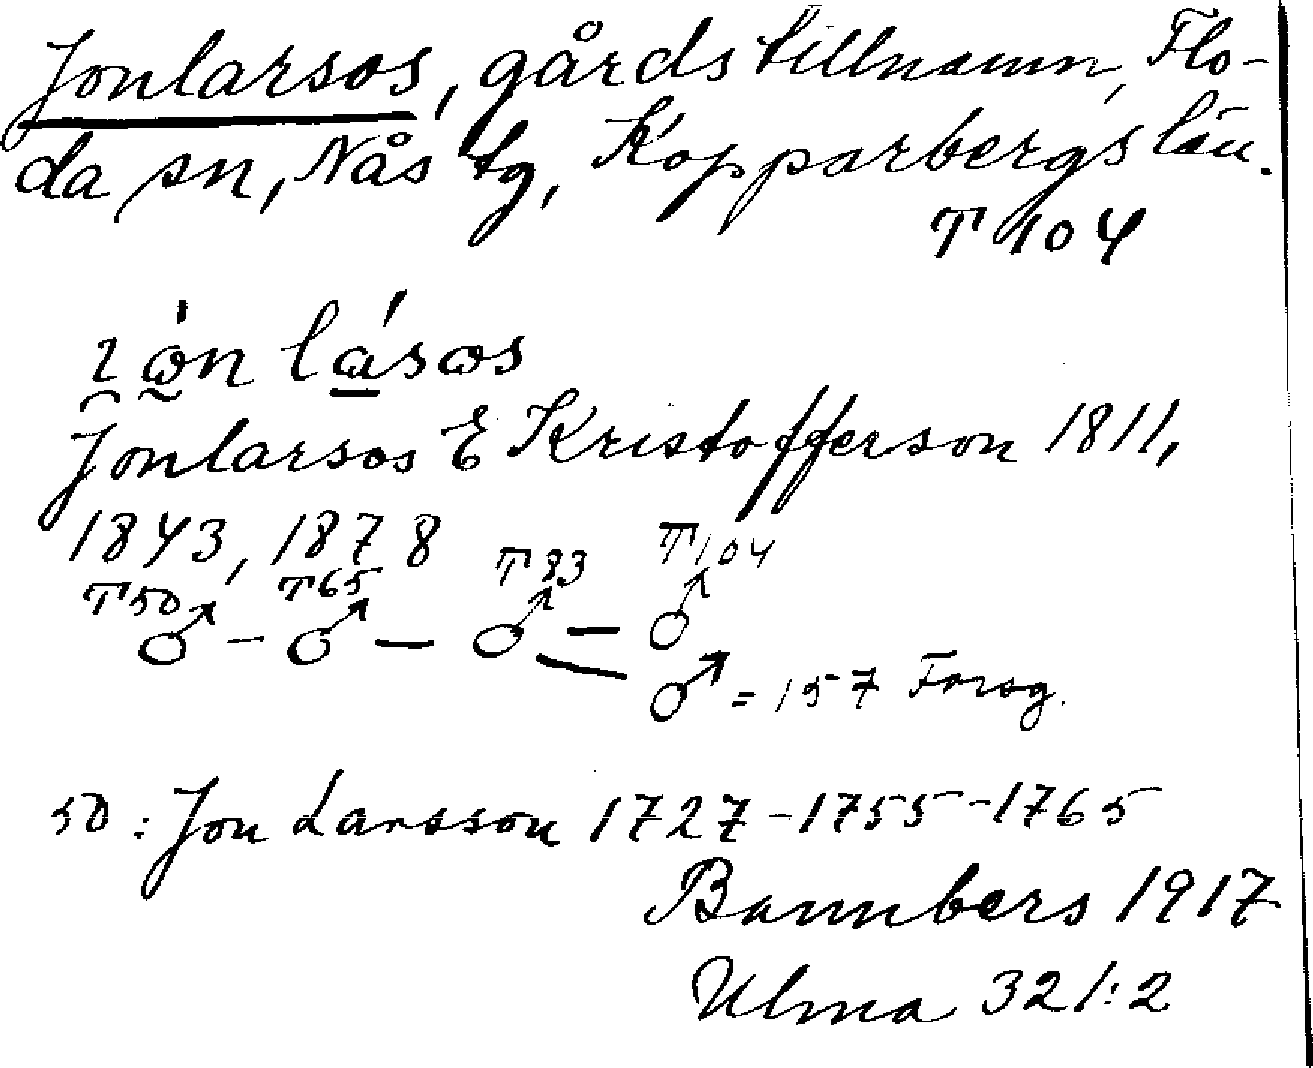 Jonlarsos, gårdstillnamn, Flo-
da sn, Nås tg, Kopparbergs län.
T 104
ɩ̯ ὼ̰n lά̱sωs
Jonlarsos E Kristofferson 1811,
1843, 1878
T50 T65 T83 T104
♂ – ♂ – ♂ – ♂
♂ = 157 Forsg.
50: Jon Larsson 1727-1755-1765
Bannbers 1917
Ulma 321:2